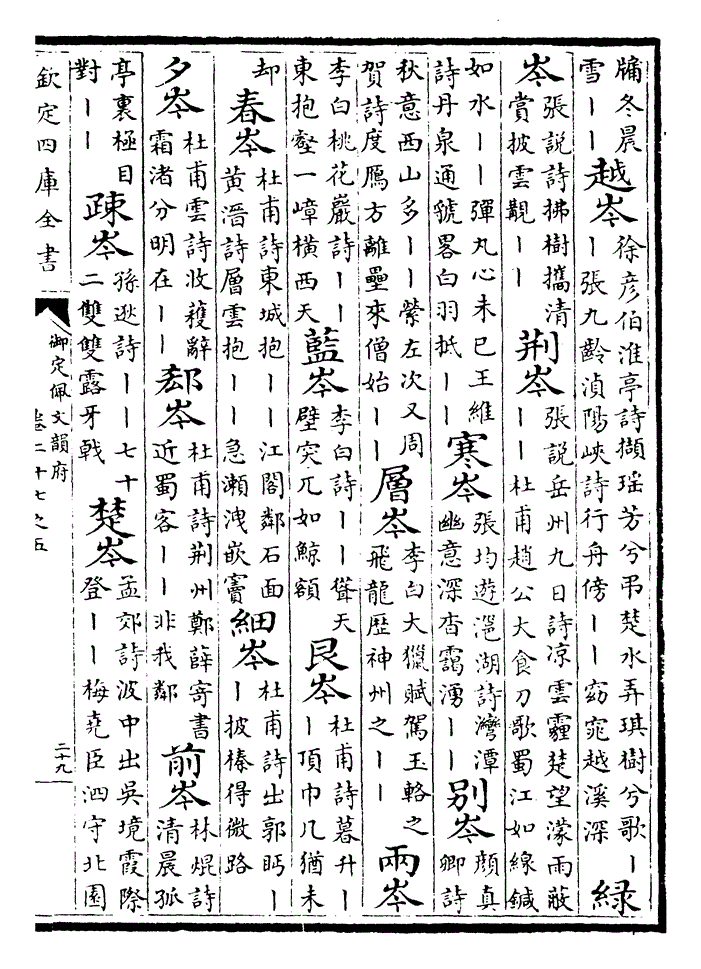 牖冬晨雪丨丨越岑徐彦伯淮亭詩擷瑶芳兮弔楚水弄琪樹兮歌丨丨張九齡湞陽峽詩行舟傍丨丨窈窕越溪深緑
岑張説詩拂樹攜清賞披雲觀丨丨荆岑張説岳州九日詩凉雲霾楚望濛雨蔽丨丨杜甫趙公大食刀歌蜀江如線鍼
如水丨丨彈丸心未已王維詩丹泉通虢畧白羽抵丨丨寒岑張均遊㴩湖詩灣潭幽意深杳靄湧丨丨别岑顔真卿詩
秋意西山多丨丨縈左次又周賀詩度鴈方離壘來僧始丨丨層岑李白大獵賦駕玉輅之飛龍歴神州之丨丨兩岑
李白桃花巖詩丨丨東抱壑一嶂横西天藍岑李白詩丨丨聳天壁突兀如鯨額艮岑杜甫詩暮升丨丨頂巾几猶未
却春岑杜甫詩東城抱丨丨江閣鄰石面黄溍詩層雲抱丨丨急瀬洩嵌竇細岑杜甫詩出郭眄丨丨披榛得微路
夕岑杜甫雲詩收穫辭霜渚分明在丨丨郄岑杜甫詩荆州鄭薛寄書近蜀客丨丨非我鄰前岑林焜詩清晨孤
亭裏極目對丨丨疎岑孫逖詩丨丨七十二雙雙露牙戟楚岑孟郊詩波中出吳境霞際登丨丨梅堯臣泗守北園
欽定四庫全書
御定佩文韻府
卷二十七之五
二十九